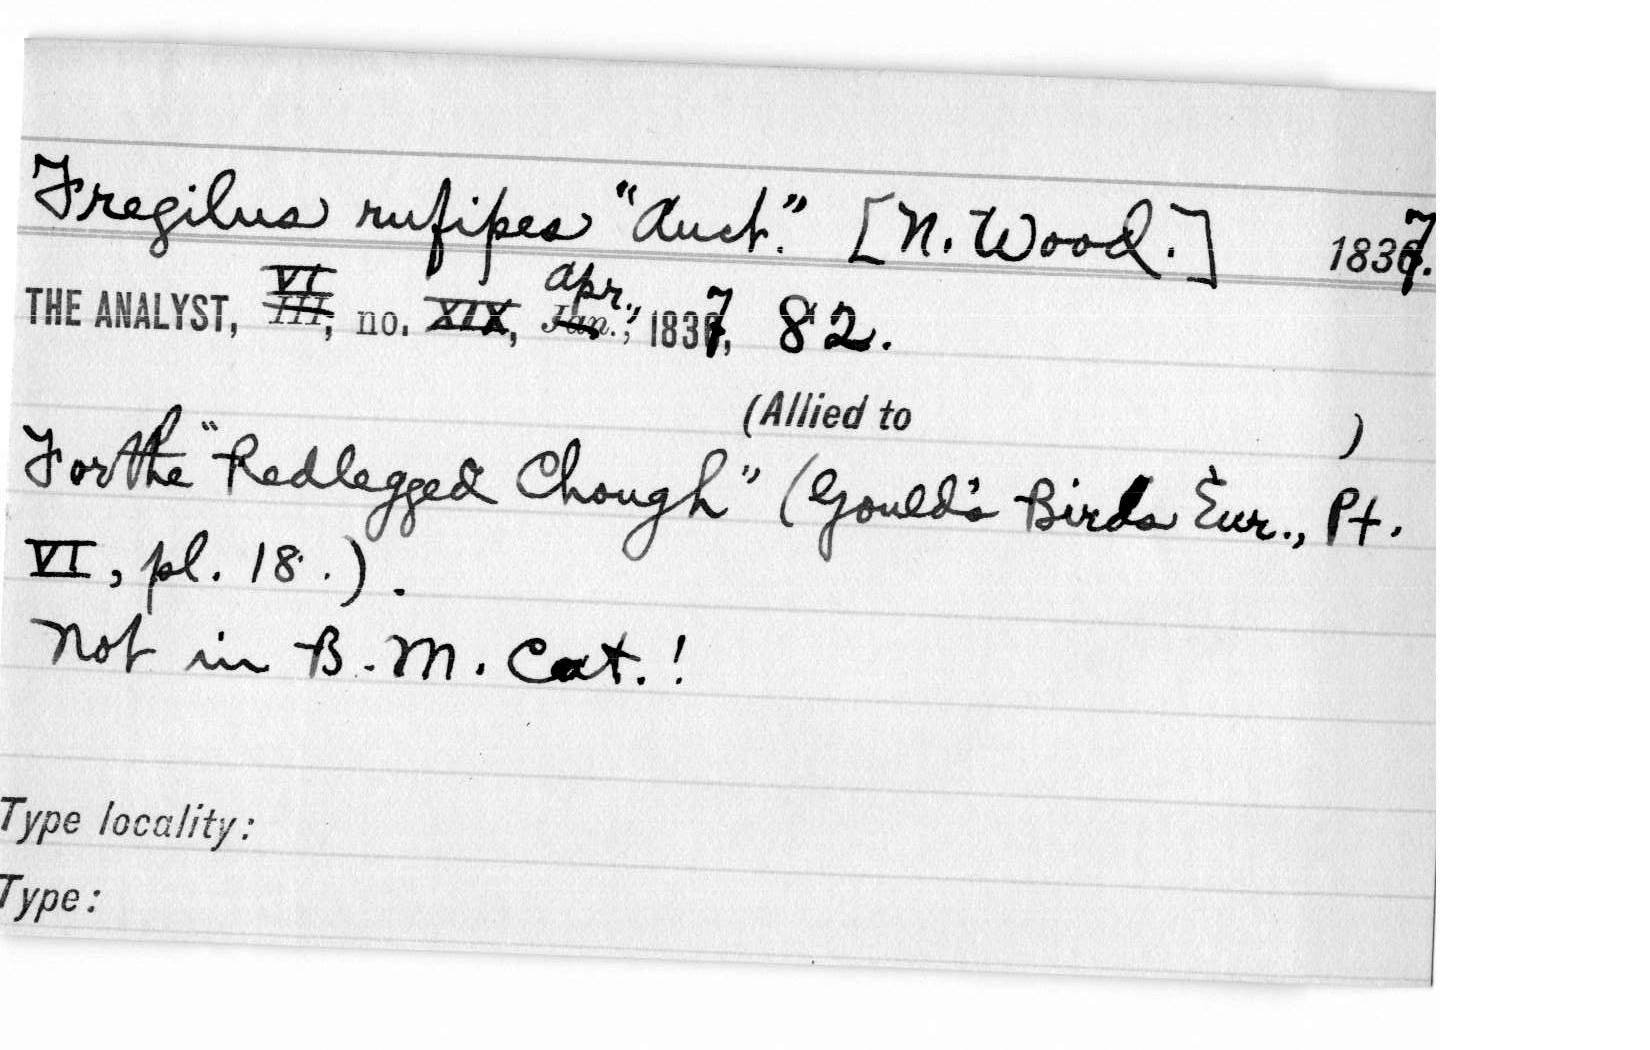 Fregilus rufipes "Auct." [N. Wood.] 1837.
THE ANALYST, VI, no. XIX, Apr., 1837, 82.
(Allied to )
For the "Redlegged Chough" (Gould's Birds Eur., Pt.
VI, pl. 18.).
Not in B.M. Cat.!
Type locality:
Type: